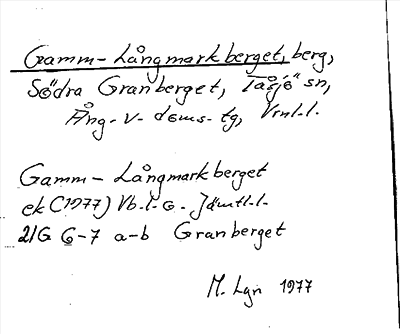 Gamm-Långmarkberget, berg,
Södra Granberget, Tåsjö sn,
Ång-V-doms-tg, Vrnl.l.
Gamm-Långmarkberget
ek (1977) Vb.l. o. Jämtl.l.
21G 6-7 a-b Granberget
M. Lgn 1977